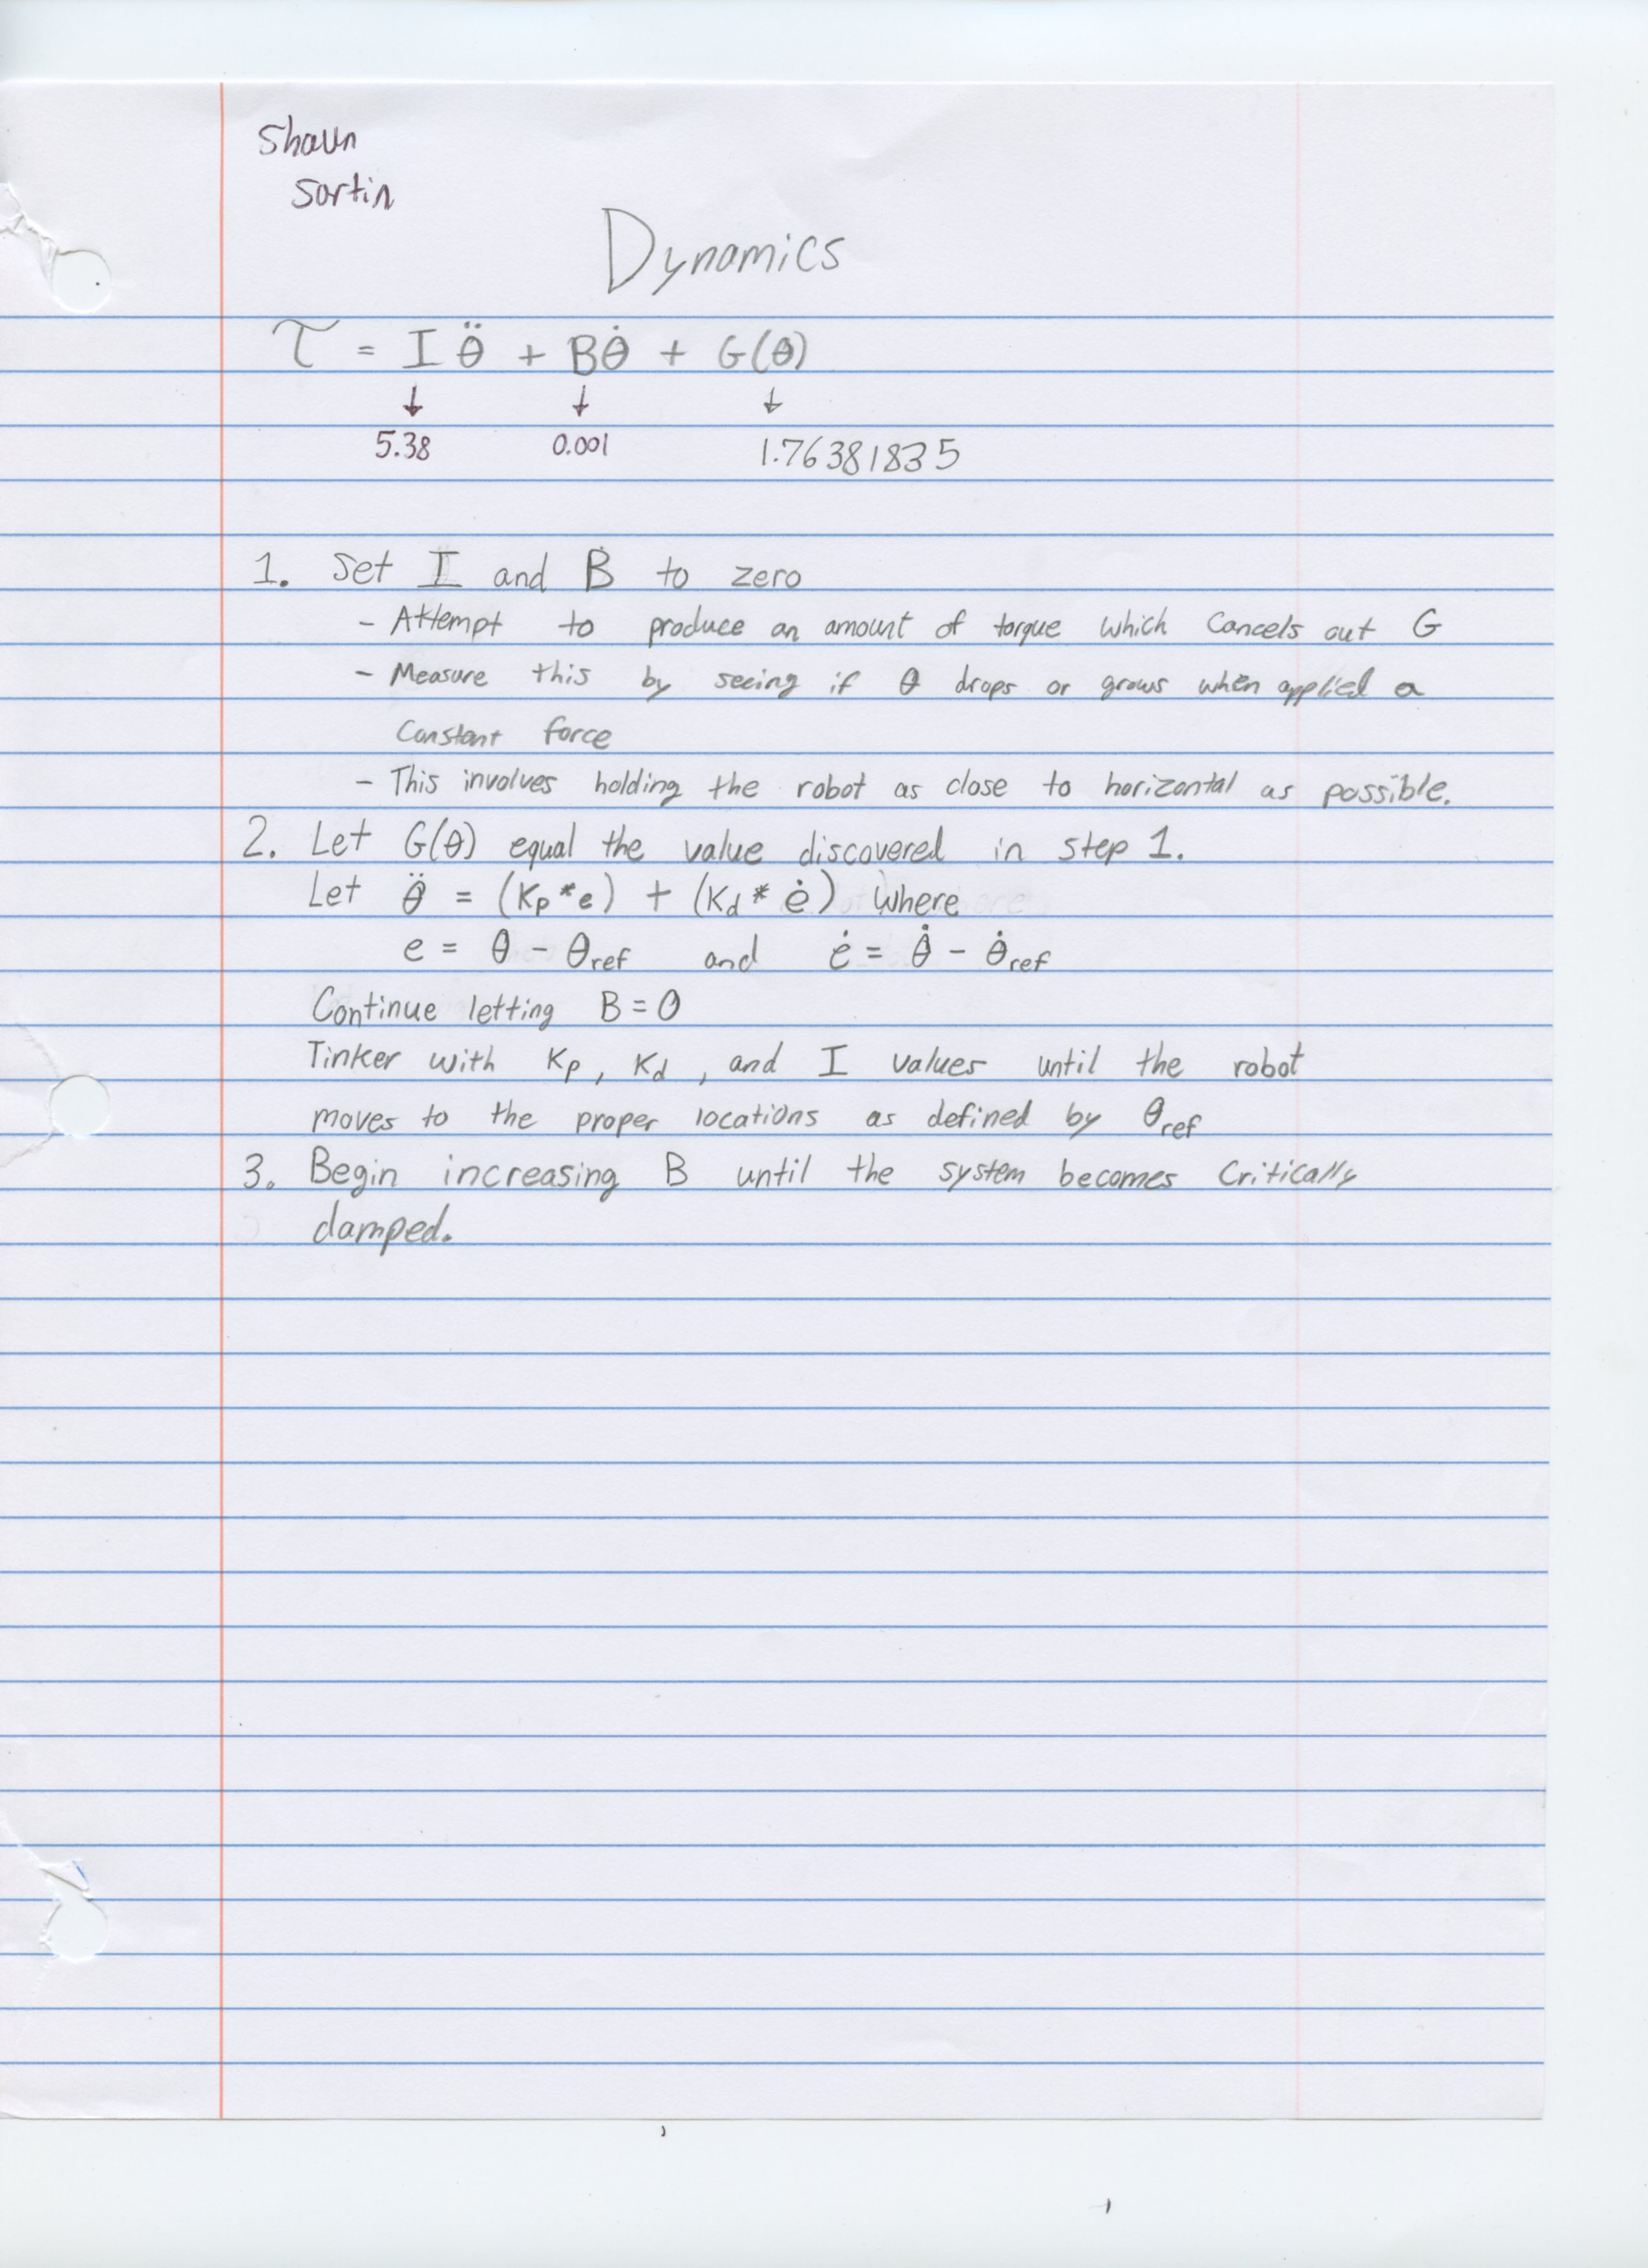 Shaun
Sortin
Dynamics
τ = I θ̈ + Bθ̇ + G(θ)
↓ ↓ ↓
5.38 0.001 1.76381835
1. Set I and B to zero
- Attempt to produce an amount of torque which cancels out G
- Measure this by seeing if θ drops or grows when applied a
constant force
- This involves holding the robot as close to horizontal as possible.
2. Let G(θ) equal the value discovered in step 1.
Let θ̈ = (Kp*e) + (Kd*ė) where
e = θ - θref and ė = θ̇ - θ̇ref
Continue letting B = 0
Tinker with Kp, Kd, and I values until the robot
moves to the proper locations as defined by θref
3. Begin increasing B until the system becomes critically
damped.